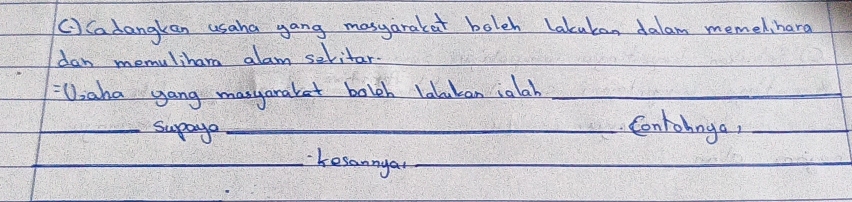 (c) Cadangkan usaha yang masyarakat boleh lakukan dalam memelihara
dan memulihara alam sekitar.
= Usaha yang masyarakat boleh lakukan ialah ____________
______ supaya ____________________. Contohnya, ______
____________. kesannya, ____________________